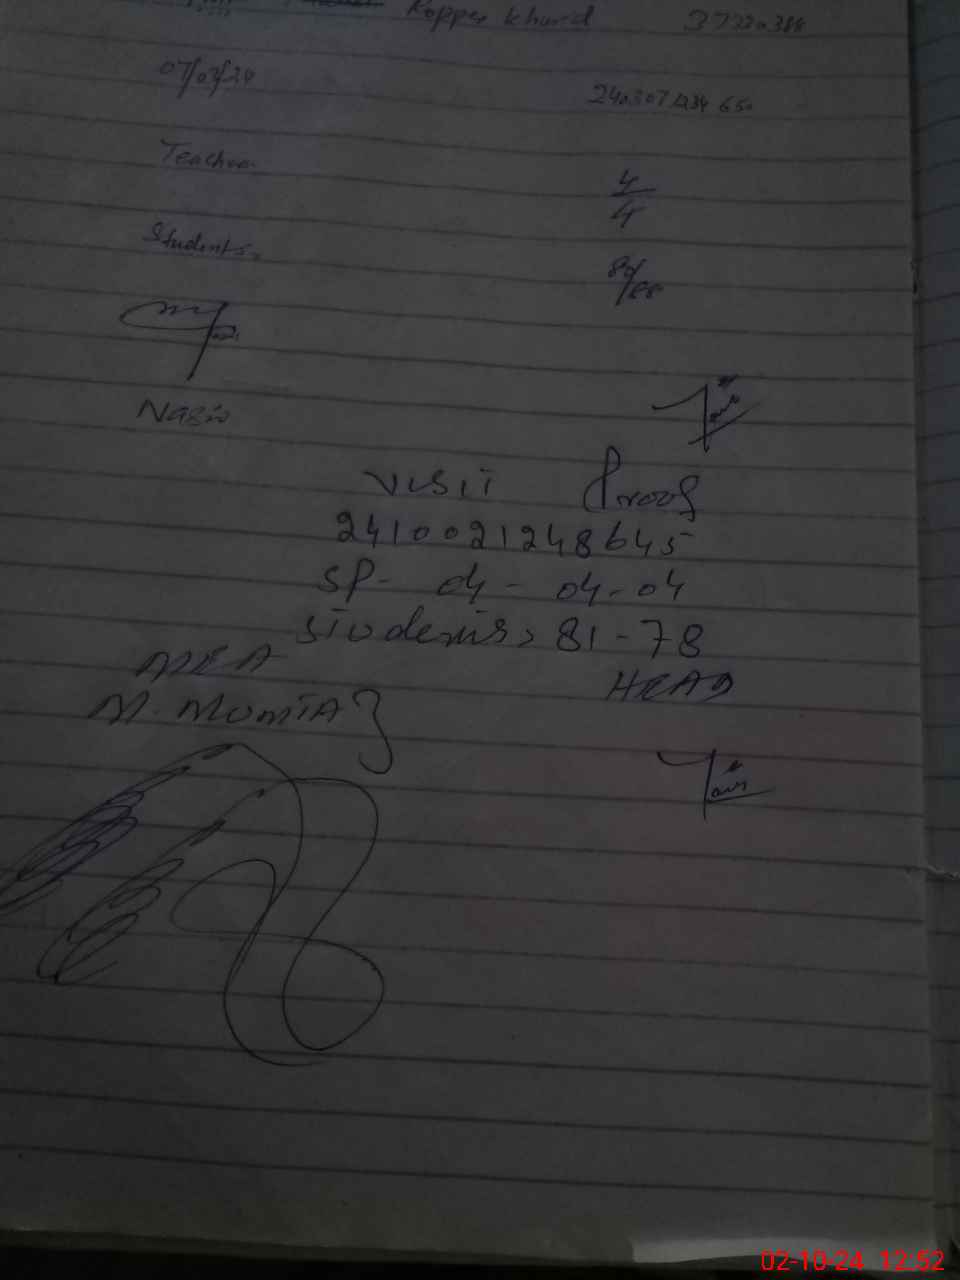 Kopper Khurd 37320388
07/03/24
240307 1234 650
Teacher 4/4
Students, 80/88
Nasir
VISIT Proof
2410021248645
SP- 04 - 04-04
Students, 81-78
MEA
HEAD
M. MUMTAZ
02-10-24 12:52